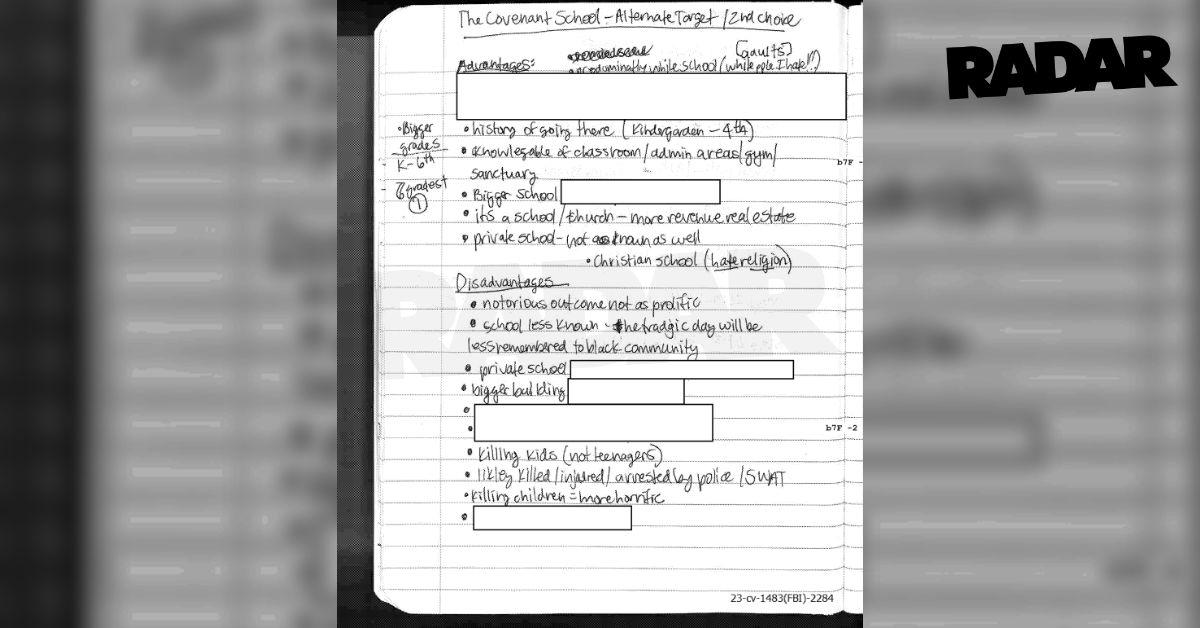 The Covenant School - Alternate Target / 2nd choice
RADAR
[gaults]
Advantages:
predominatly white school (white pple I hate!!)
• history of going there (Kindergarden - 4th)
• Bigger
grades
K-6th
• Knowlegable of classroom/admin areas/gym/
sanctuary
b7F -
gradest
1
• Bigger School
• its a school/church - more revenue real estate
• private school - not as known as well
• Christian school (hate religion)
Disadvantages
• notorious outcome not as prolific
• school less known - the tradgic day will be
less remembered to black community
• private school
• bigger building
b7F -2
• Killing kids (not teenagers)
• likley killed/injured/arrested by police/SWAT
• Killing children = more horrific
23-cv-1483(FBI)-2284
RADAR